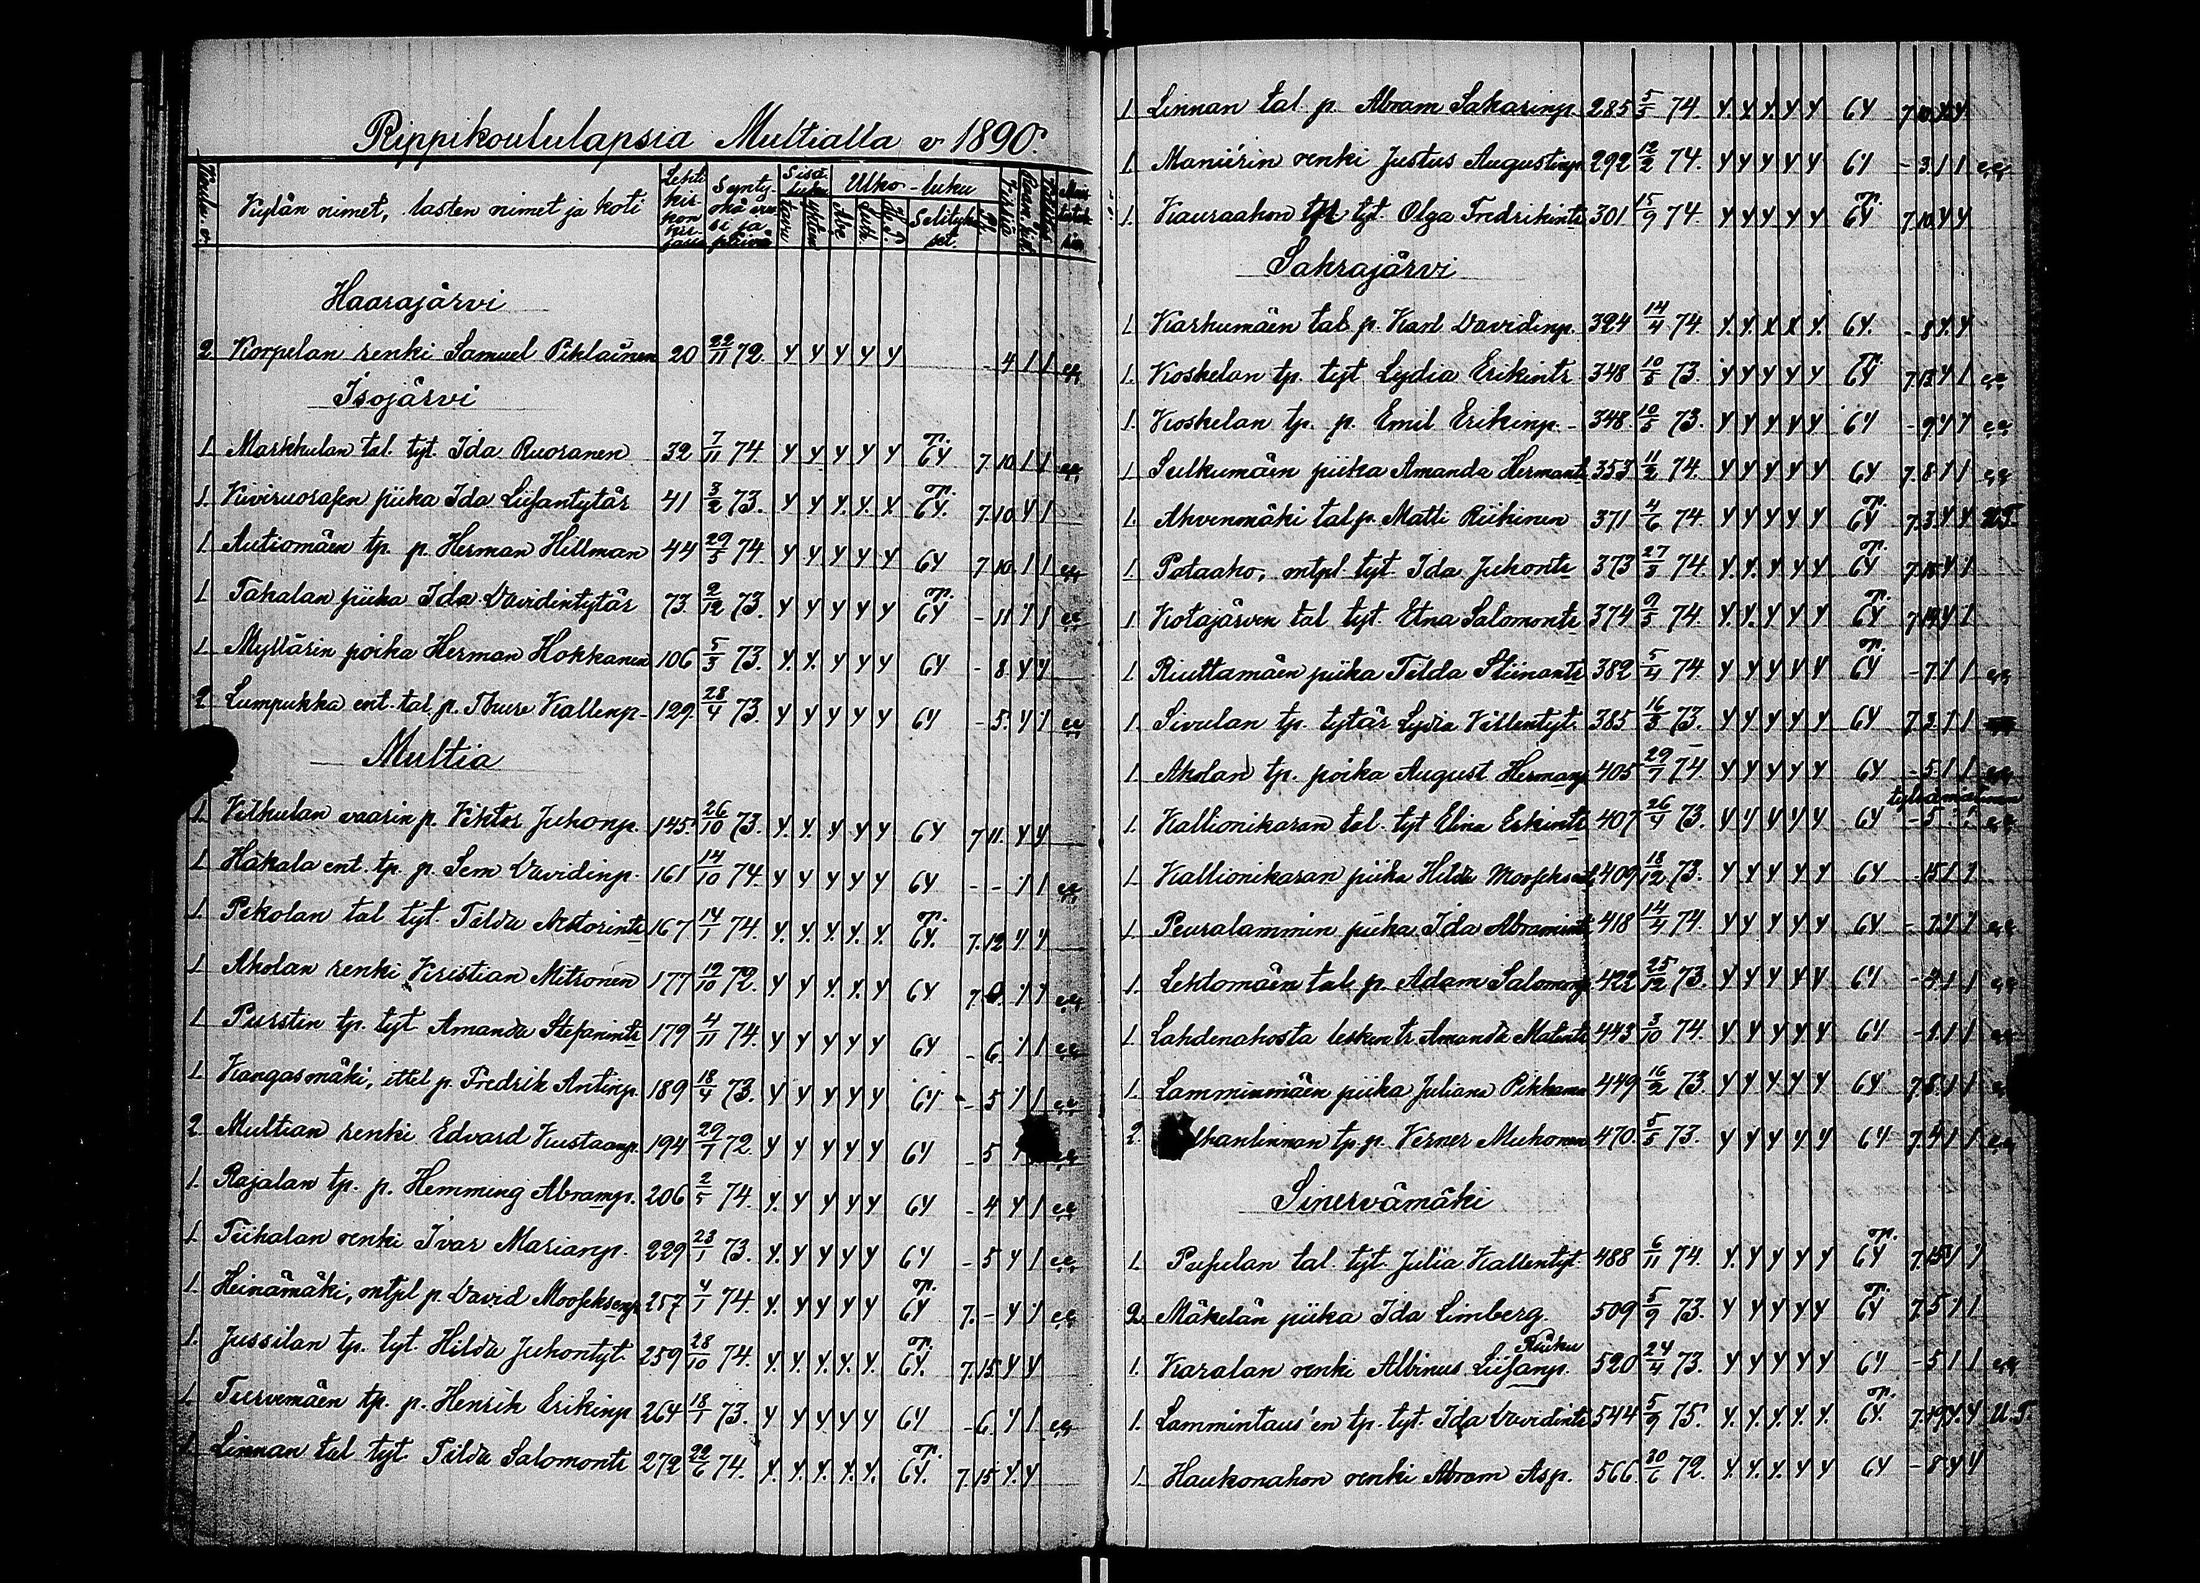 Rippikoululapsia Multialla v 1890.
Kylän nimet, lasten nimet ja koti Lehti kirkon kirjassa Syntymä vuosi ja päivä Sisä luku Ulko-luku Selitykset.
Haarajärvi
2 Korpelan renki Samuel Piklainen 20 22/11 72. y y y y y - 4 1 1 ee
Isojärvi
1 Markkulan tal. tyt. Ida Ruoranen 32 7/11 74 y y y y y 64 7. 10 1 1 ee
1. Kiviruorasen piika Ida Liisantytär 41 3/2 73. y y y. y. y 64. 7. 10 y 1
1 Autiomäen tp. p. Herman Hillman 44 29/5 74 y y y y y 64 7 10. 1 1 ee
1 Tahalan piika Ida Davidintytär 73 2/12 73. y y y y y 64 - 11 1 1 ee
1 Myllärin poika Herman Hokkanen 106 5/3 73. y. y. y y y 64 - 8. y y
2 Lumpukka ent. tal. p. Thure Kallenp. 129. 28/4 73. y y y y y 64 - 5. y 1 ee
Multia
1. Vilkulan vaarin p. Viktor Juhonp. 145 26/10 73. y. y y y y 64 7 11. y y
1 Häkala ent. tp. p. Sem Davidinp. 161 14/10 74. y y y y y 64 - - 1 1 ee
1. Pekolan tal tyt. Tilda Nestorintr 167 14/1 74. y. y. y. y. y. 64. 7. 12 y y
1 Akolan renki Kristian Mitronen 177 19/10 72. y y y. y. y 64 7. 8. y y ee
1 Purstin tp. tyt Amanda Stefanintr 179 4/11 74. y y y y y 64 - 6. 1 1 ee
1. Kangasmäki, ittel p. Fredrik Antinp. 189 18/4 73. y y y y y 64 - 5 1 1 ee
2 Multian renki Edvard Kustaanp. 194 29/7 72. y y y y y 64 - 5 ee
1. Rajalan tp. p. Hemming Abramp. 206 2/5 74. y. y y y y 64 - 4 y 1 ee
1. Tiikalan renki Ivar Marianp. 229 23/1 73. y. y y y y 64 - 5 y 1 ee
1. Heinämäki, mtpl p. David Mooseksenp. 257 4/1 74. y. y y y y 64 7. - y 1 ee
1. Jussilan tp. tyt. Hilda Juhontyt. 259 28/10 74. y. y. y. y. y. 64. 7. 15. y y
1. Turvemäen tp. p. Henrik Erikinp 264 18/1 73. y y y y y 64 - 6. y 1 ee
1 Linnan tal tyt. Tilda Salomontr 272 22/6 74. y. y. y. y. y. 64. 7. 15 y. y
1. Linnan tal. p. Abram Sakarinp. 285 5/5 74. y. y. y. y y 64 7 10 y. y
1. Maniirin renki Justus Augustinp. 292 12/2 74. y y y y y 64 - 3. 1 1 ee
1. Kauraahon tyt. Olga Fredrikintr 301 15/9 74. y y y y y 64 7. 10. y y
Sahrajärvi
1. Karhumäen tal p. Karl Davidinp. 324 14/4 74. y. y. y y y. 64. - 8 y. y
1. Koskelan tp. tyt Lydia Erikintr 348 10/5 73. y y y y y 64 7. 12 y 1 ee
1. Koskelan tp. p. Emil Erikinp. - 348. 10/5 73. y y y y y 64 - 9 y y ee
1. Sulkumäen piika Amanda Hermantr 353 11/2 74. y y y y y 64 7. 8 1 1 ee
1. Ahvenmäki tal p. Matti Riikinen 371 4/6 74. y y y y y 64 7. 3. y y U.T.
1. Pataaho, mtpl tyt. Ida Juhontr 373 27/3 74. y. y. y y y 64 7. 15 y 1
1. Kotajärven tal tyt. Etna Salomontr 374 9/5 74. y. y. y y y 64 7 12 y 1
1. Riuttamäen piika Tilda Stiinantr 382 5/4 74. y y y y y 64 - 7. 1 1 ee
1. Sivulan tp. tytär Lydia Villentyt. 385 16/3 73. y y y y y. 64 7. 2. 1 1
1. Akolan tp. poika August Hermanp. 405 29/7 74. y y y y y 64 - 5. 1 1 ee
tylsämielinen
1. Kallionikaran tal. tyt Elina Erkintr 407 26/4 73. y y y y y 64 - 5 ee
1. Kallionikaran piika Hilda Mooseksentr 409 18/12 73. y y y y y 64 - 15 1 1
1. Peuralammin piika Ida Abramintr 418 14/4 74. y y y y y 64 - 7. 1 1 ee
1. Lehtomäen tal. p. Adam Salomonp. 422 25/12 73. y y y y y 64 - 4. 1 1 ee
1. Lahdenahosta lesken tr Amanda Matintr 443 3/10 74. y y y y y 64 - 1. 1 1 ee
1. Lamminmäen piika Juliana Pikkanen 449 16/2 73. y y y y y 64 7. 5. 1 1
2. kanlinnan tp. p. Verner Muhonen 470. 5/5 73. y y y y y 64 7. 4 1 1 ee
Sinervämäki
1. Pusulan tal. tyt. Julia Kallentyt. 488 6/11 74. y. y y y y 64 7. 15 y y
2. Mäkelän piika Ida Limberg. 509 5/9 73. y y y y y 64 7. 5 1 1
Ruuku
1. Karalan renki Albinus Liisanp. 520 24/4 73. y y y y y 64 - 5 1 1 ee
1. Lammintaus'en tp. tyt. Ida Davidintr 544 5/9 75. y. y. y. y. y. 64. 7. 19 y. y U.T.
1. Haukonahon renki Abram Asp. 566. 20/6 72. y. y. y. y y 64 - 8 y y